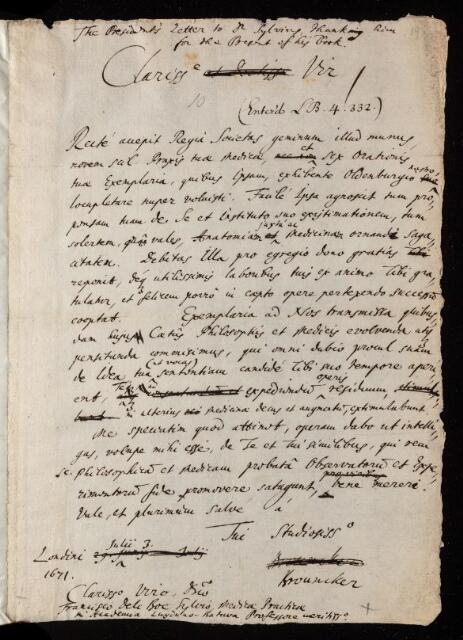 The Presidents Letter to Dr Sylvius, thanking him
for the Present of his Book.
Clarisso et Vir
10
(Enter'd LB. 4. 332.)
Recte accepit Regia Societas geminum illud munus,
novem scil. Praxis tuæ medicæ, et sex Orationis
tuæ Exemplaria, quibus Ipsam, exhibente Oldenburgio nostro,
locupletare nuper voluisti. Facile Ipsa agnoscit tum pro,
pensam tuam de Se et Instituto suo existimationem, tum
solertem, quâ vales, Anatomiam juxta ac medicinam ornandi saga,
citatem. Debitas Illa pro egregio dono gratias
reponit, deq utilissimis laboribus tuis ex animo Tibi gra,
tulatur, et felicem porro in cæpto opere pertexendo successum
cooptat. Exemplaria ad Nos transmissa quibus,
dam hujus Cætus Philosophis et medicis evolvenda, atq
pensitanda commisimus, qui omni dubio procul suam
de Idea tua et vocas sententiam candide Tibi suo tempore aperi,
ent, Teq ad expediendum operis residuum,
ulterius medicinæ decus et augmentum, extimulabunt.
Me speciatim quod attinet, operam dabo ut intelli,
gas, volupe mihi esse, de Te et Tui similibus, qui rem
Philosophicam et medicam probata Observatorum et Expe,
rimentorum fide promovere satagunt, bene mereri.
Vale, et plurimum salve
Tui Studiosiss
Londini Julii 3.
1671.
Brouncker
Clarisso Viro, Dno
Francisco Dele Boe Sylvio, Medicinæ Practicæ
in Academia Lugduno-Batava Professore meritisso